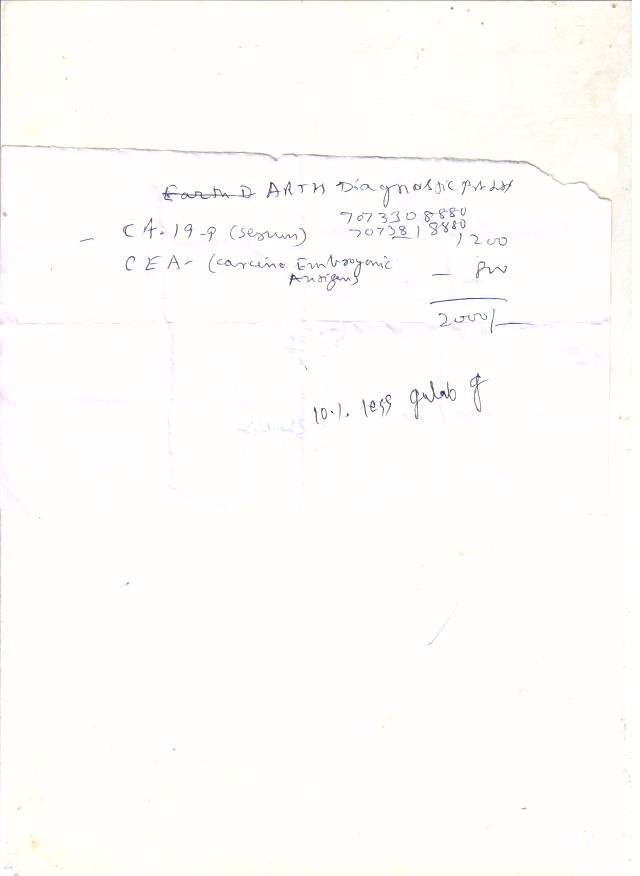 Earth D ARTH Diagnostic Pvt Ltd
7073308880
- CA-19-9 (serum) 7073818880 1200
CEA- (carcino Embroyonic Antigens) - 800
2000/-
10.1. less gulab g